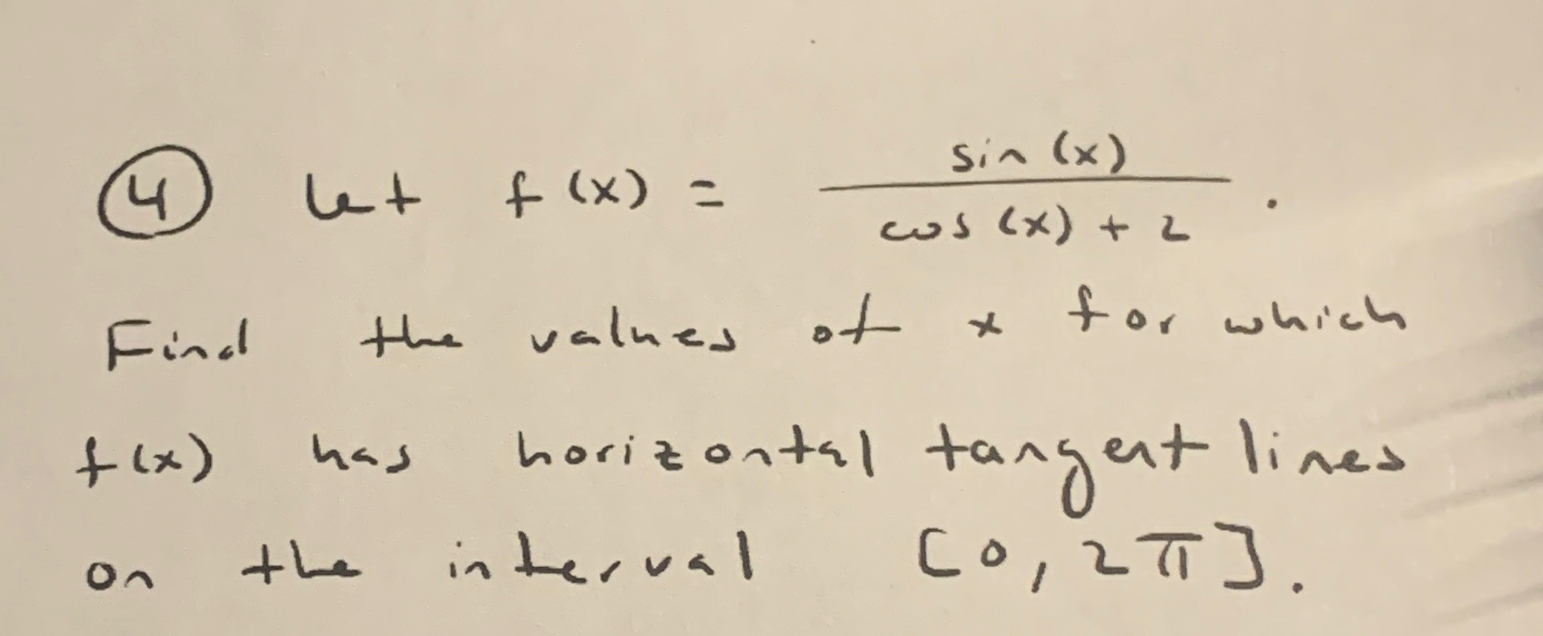 ④ Let f(x) = sin(x) / cos(x) + 2 .
Find the values of x for which
f(x) has horizontal tangent lines
on the interval [0, 2π].